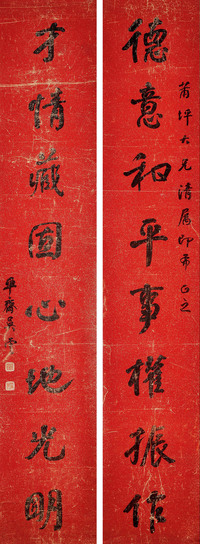 莆坪大兄清屬即希正之
德意和平事權振作
才情藏固心地光明
平齋吳雲